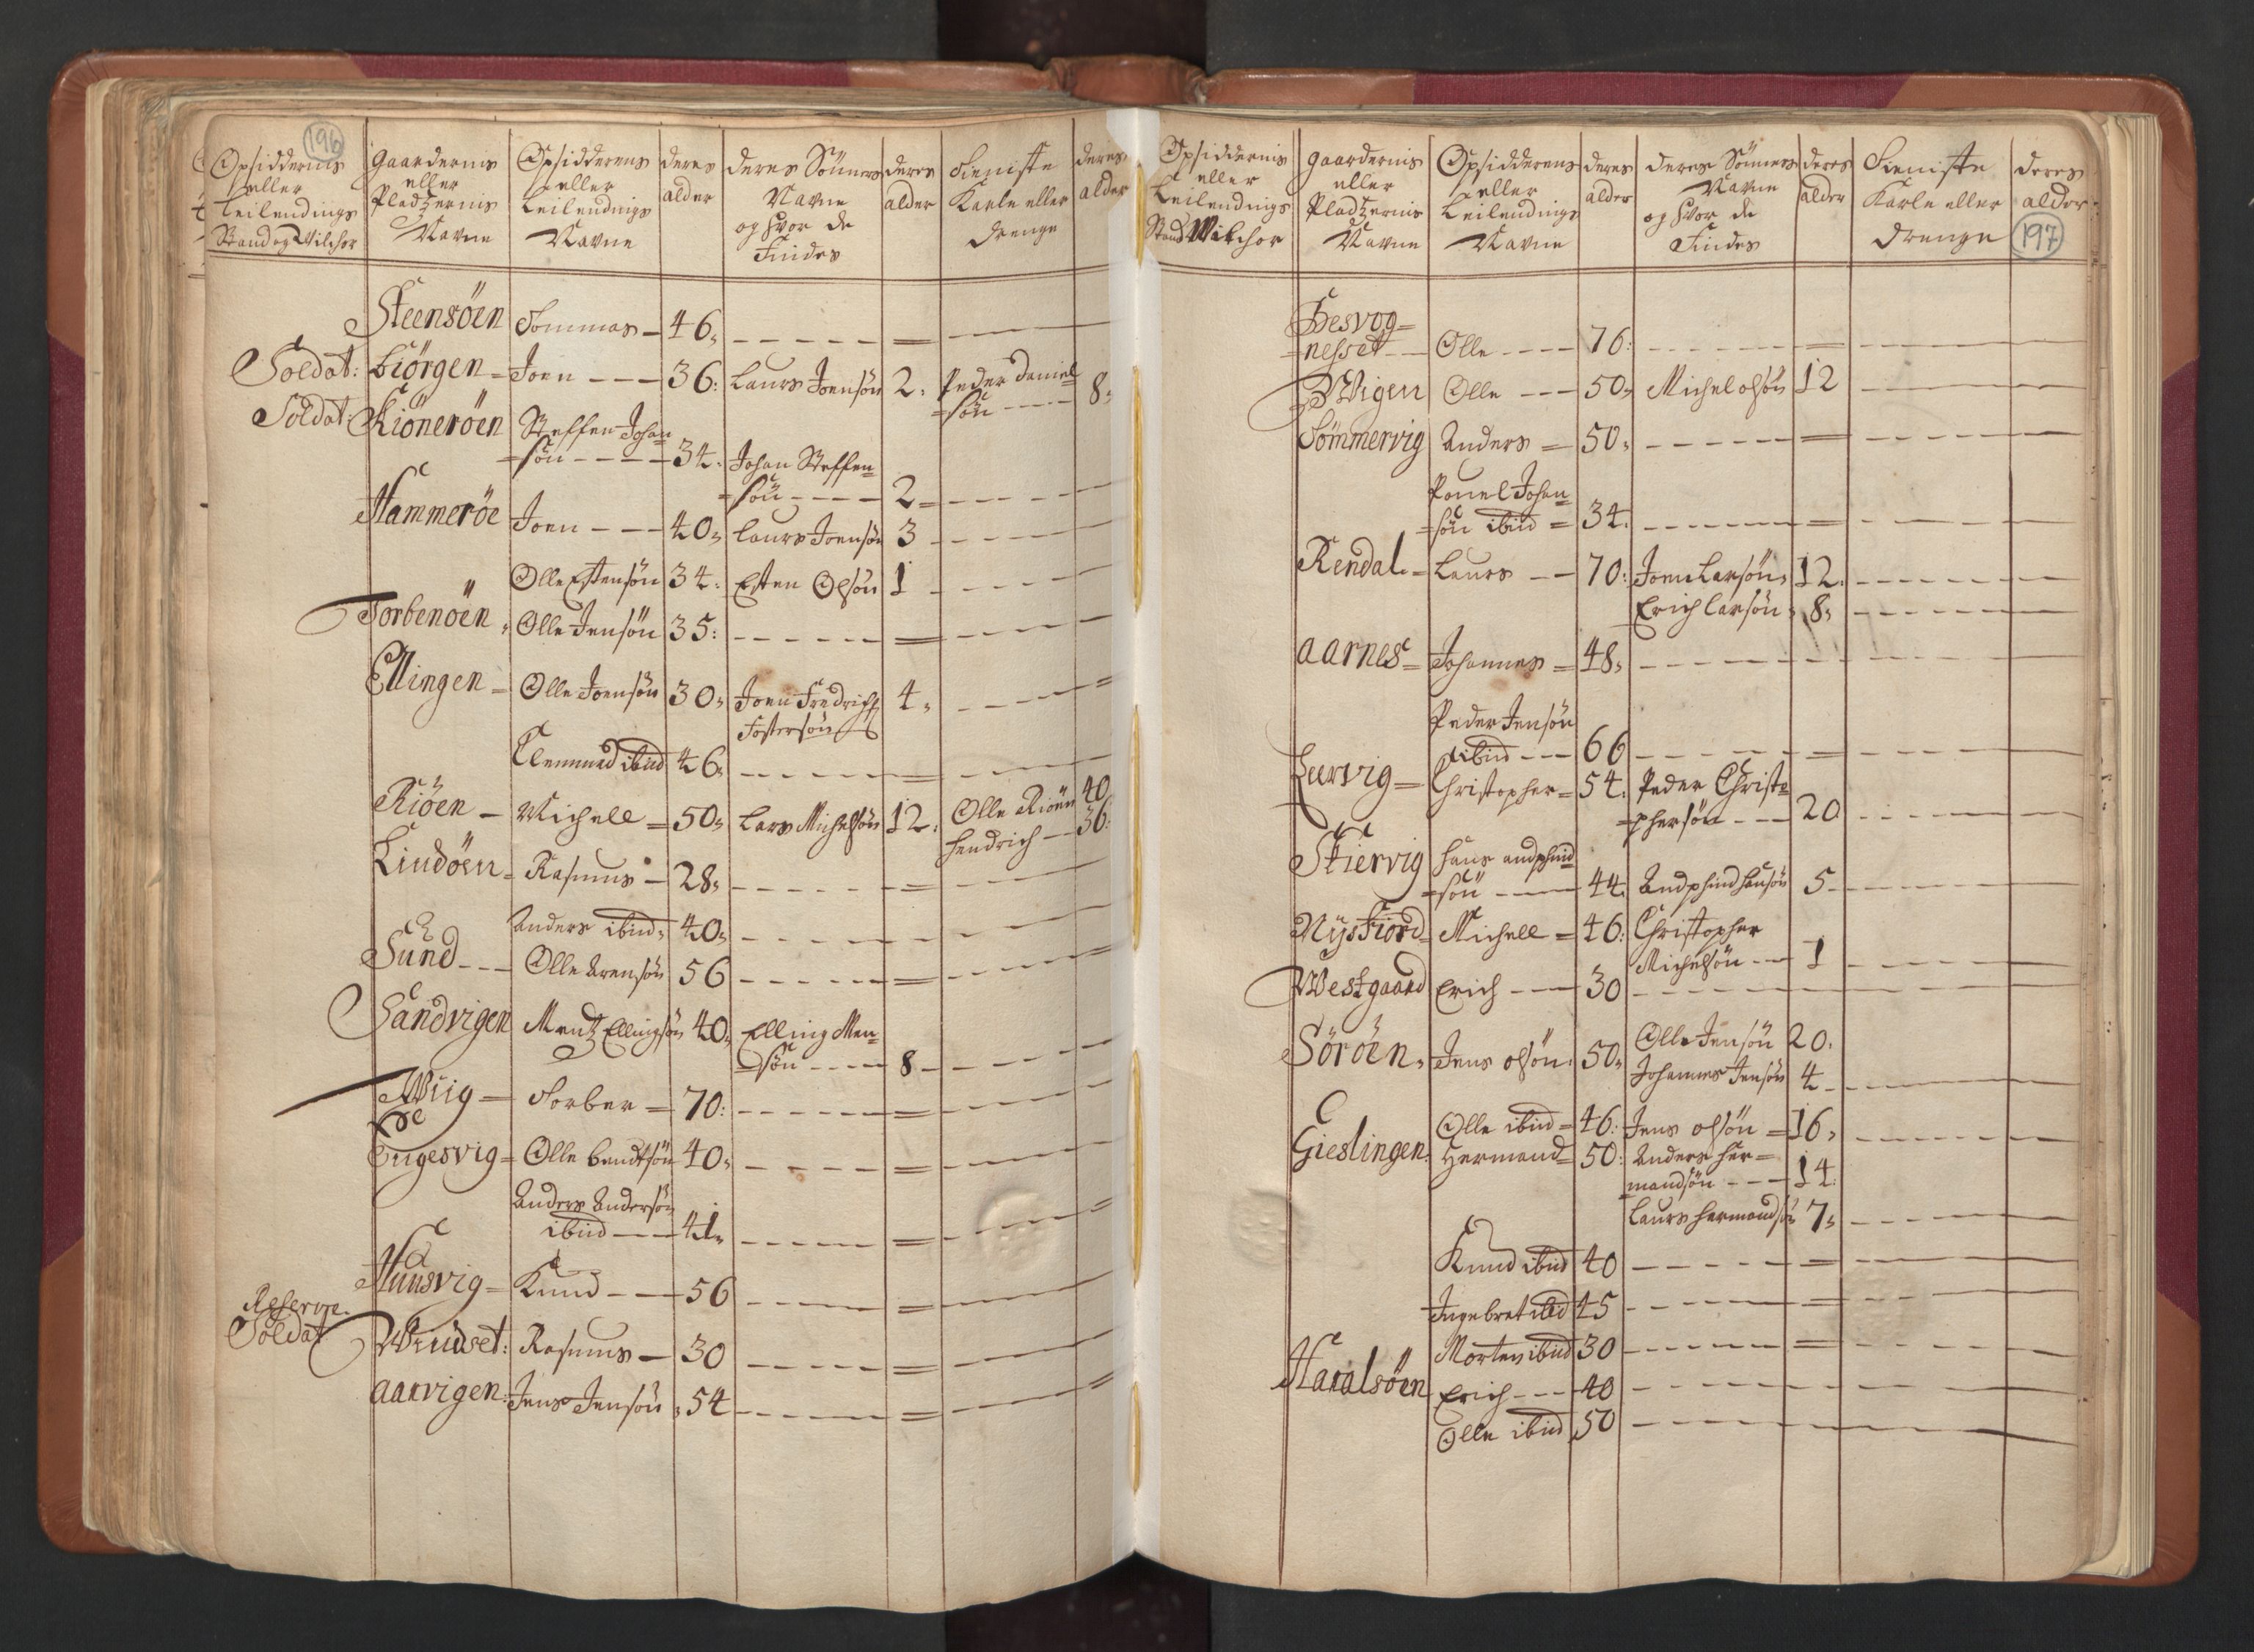 196
Opsiddernis eller Leilendings Stand og Vilchor
Gaardernis eller Pladzernis Navne
Opsidderens eller Leilendnigs Navne
deres alder
deres Sönners Navne og hvor de Findes
deres alder
Tieniste Karle eller drenge
deres alder
Steensöen Tommas 46
Soldat: Biörgen Joen 36: Laurs Joensön 2: Peder Daniel=
=sön 8
Soldat: Kiöneröen Steffen Johan=
=sön 34: Johan Steffen=
=sön 2
Hammeröe Joen 40 Laurs Joensön 3
Olle Estensön 34: Esten Olsön 1
Torbenöen Olle Jensön 35:
Ellingen Olle Joensön 30 Joen Fredrichs 4
Fostersön
Clemmed ibid 46
Riöen Michell 50 Lars Michelsön 12: Olle Riöen 40
Hendrich 36:
Lindöen Rasmus 28
Anders ibid 40
Sund Olle Arensön 56
Sandvigen Mentz Ellingsön 40 Elling Men=
=sön 8
Wiig Torber 70:
Engesvig Olle Bendtsön 40
Anders Andersön
ibid 41
Huusvig Knud 56
Reserve
Soldat Windset: Rasmus 30
Aarvigen: Jens Jensön 54
Opsiddernis eller Leilendnigs Stand Wilchor
gaardernis eller Pladzernis Navne
Opsidderens eller Leilendings Navne
deres alder
deres Sönners Navne og hvor de Findes
deres alder
Tieniste Karle eller drenge
deres alder
197
Besvog=
=nesset Olle 76:
Wigen Olle 50 Michel olsön 12
Sömmervig Anders 50
Pouel Johan=
=sön ibid 34:
Rendal Laurs 70: Joen Larsön 12
Erich Larsön 8
Aarnes Johannes 48
Peder Jensön
ibid 66
Lurvig Christopher 54: Peder Christo=
=phersön 20
Stiervig Hans Andphind=
=sön 44 Andphind Hansön 5
Nysfiord Michell 46: Christopher
Michelsön 1
Westgaard Erich 30
Söröen Jens olsön 50 Olle Jensön 20
Johannes Jensön 4
Olle ibid 46: Jens olsön 16
Gieslingen Hermand 50: Anders Her=
=mandsön 14
Laurs Hermandsön 7
Knud ibid 40
Ingebret ibid 45
Morten ibid 30
Haralsöen Erich 40
Olle ibid 50